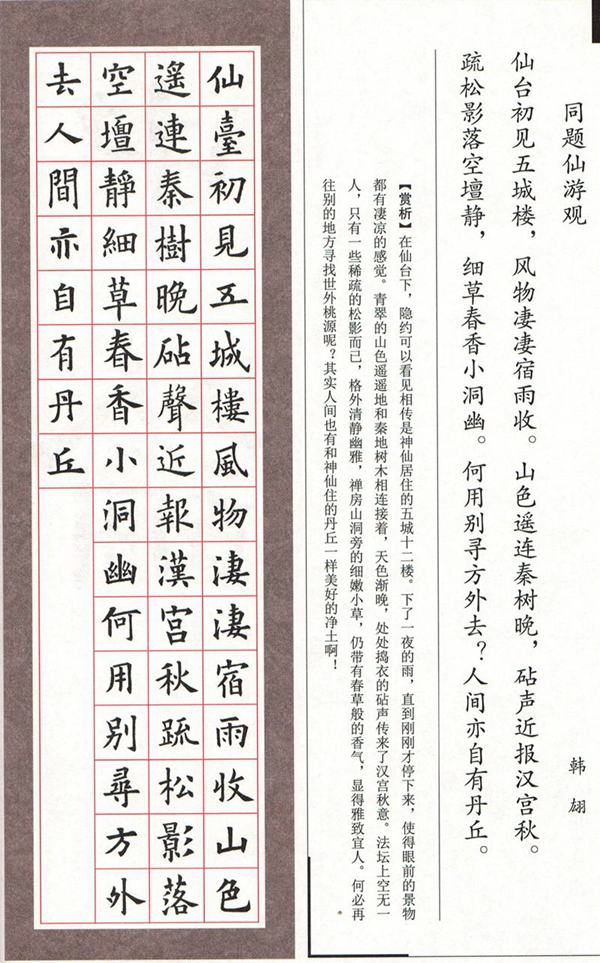 同题仙游观
韩翃
仙台初见五城楼，风物凄凄宿雨收。山色遥连秦树晚，砧声近报汉宫秋。
疏松影落空壇静，细草春香小洞幽。何用别寻方外去？人间亦自有丹丘。
【赏析】在仙台下，隐约可以看见相传是神仙居住的五城十二楼。下了一夜的雨，直到刚刚才停下来，使得眼前的景物
都有凄凉的感觉。青翠的山色遥遥地和秦地树木相连接着，天色渐晚，处处捣衣的砧声传来了汉宫秋意。法坛上空无一
人，只有一些稀疏的松影而已，格外清静幽雅，禅房山洞旁的细嫩小草，仍带有春草般的香气，显得雅致宜人。何必再
往别的地方寻找世外桃源呢？其实人间也有和神仙住的丹丘一样美好的净土啊！
仙臺初見五城樓風物淒淒宿雨收山色
遙連秦樹晚砧聲近報漢宮秋疏松影落
空壇靜細草春香小洞幽何用別尋方外
去人間亦自有丹丘